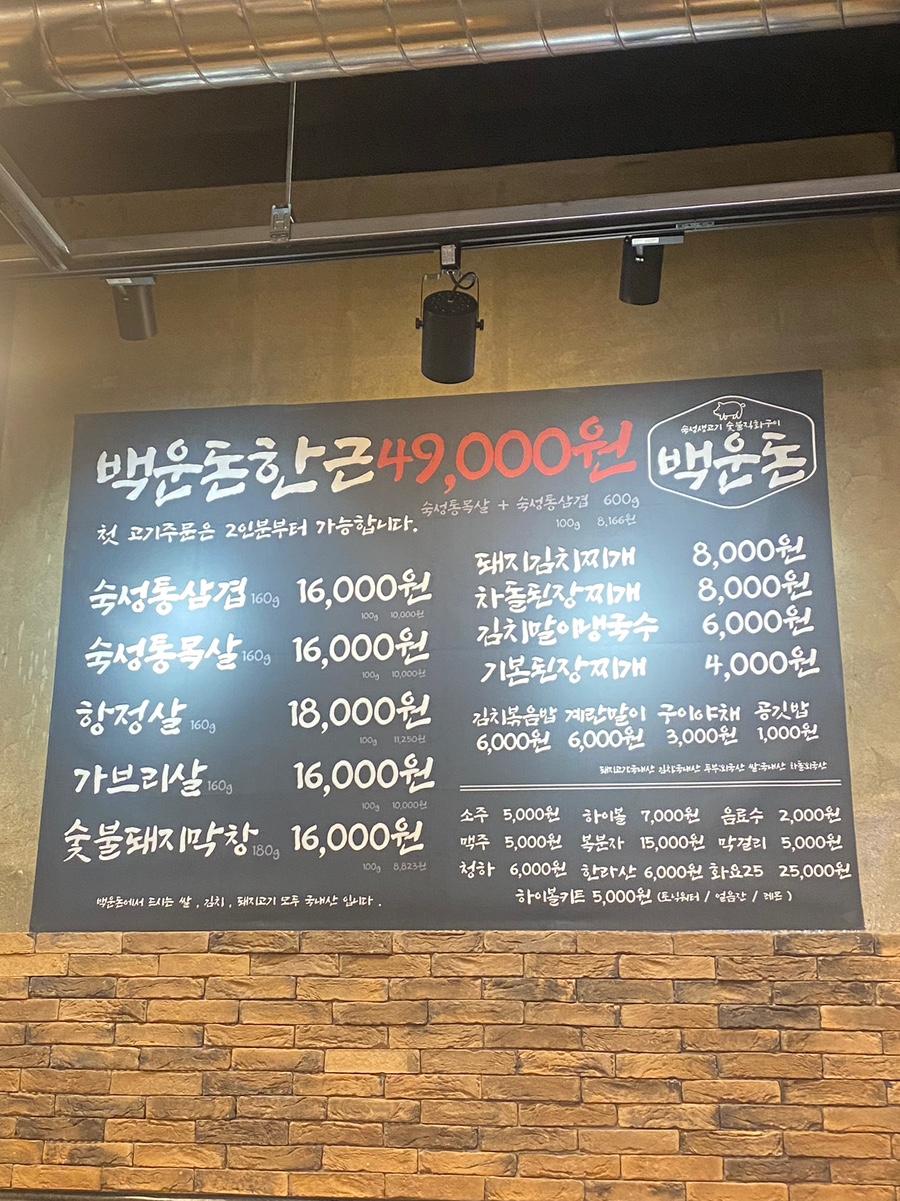 백운돈한근 49,000원
숙성생고기 숯불직화구이
백운돈
숙성통목살 + 숙성통삼겹 600g
100g 8,166원
첫 고기주문은 2인분부터 가능합니다.
숙성통삼겹 160g 16,000원
100g 10,000원
숙성통목살 160g 16,000원
100g 10,000원
항정살 160g 18,000원
100g 11,250원
가브리살 160g 16,000원
100g 10,000원
숯불돼지막창 180g 16,000원
100g 8,823원
백운돈에서 드시는 쌀, 김치, 돼지고기 모두 국내산 입니다.
돼지김치찌개 8,000원
차돌된장찌개 8,000원
김치말이냉국수 6,000원
기본된장찌개 4,000원
김치볶음밥 계란말이 구이야채 공깃밥
6,000원 6,000원 3,000원 1,000원
돼지고기:국내산 김치:국내산 두부:외국산 쌀:국내산 차돌:외국산
소주 5,000원 하이볼 7,000원 음료수 2,000원
맥주 5,000원 복분자 15,000원 막걸리 5,000원
청하 6,000원 한라산 6,000원 화요25 25,000원
하이볼키트 5,000원 (토닉워터 / 얼음잔 / 레몬)